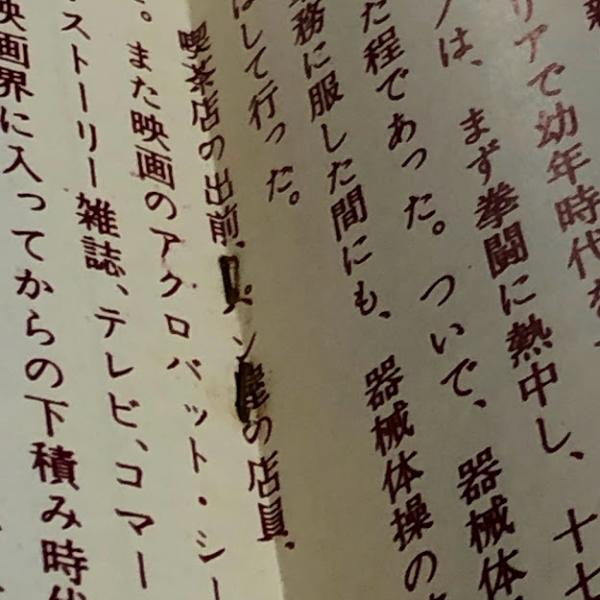 リアで幼年時代を
は、まず拳闘に熱中し、十七
た程であった。ついで、器械体
務に服した間にも、器械体操の
はして行った。
喫茶店の出前、パン屋の店員、
。また映画のアクロバット・シー
ストーリー雑誌、テレビ、コマー
映画界に入ってからの下積み時代